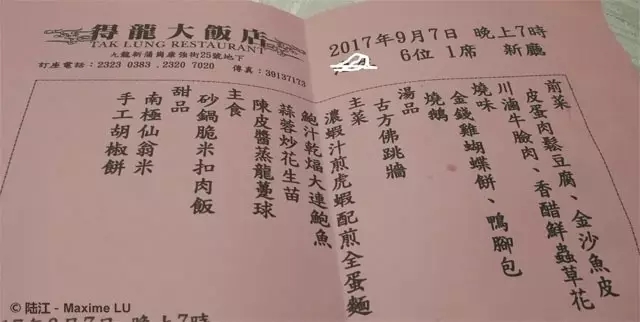 得龍大飯店
TAK LUNG RESTAURANT
九龍新蒲崗康強街25號地下
訂座電話：2323 0383 , 2320 7020
傳真：39137173
2017年9月7日 晚上7時
6位 1席 新廳
前菜
皮蛋肉鬆豆腐、金沙魚皮
川滷牛臉肉、香醋鮮蟲草花
燒味
金錢雞蝴蝶餅、鴨腳包
燒鵝
湯品
古方佛跳牆
主菜
濃蝦汁煎虎蝦配煎全蛋麵
鮑汁乾煏大連鮑魚
蒜蓉炒花生苗
陳皮醬蒸龍躉球
主食
砂鍋脆米扣肉飯
甜品
南極仙翁米
手工胡椒餅
© 陆江 - Maxime LU
2017年9月7日 晚上7時